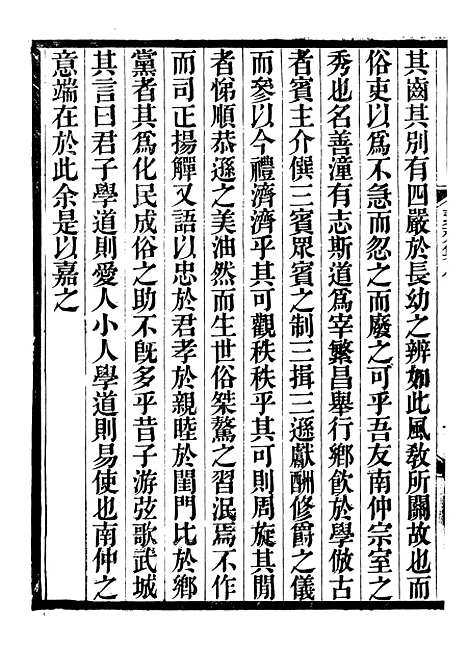 其齒其別有四嚴於長幼之辨如此風敎所關故也而
俗吏以爲不急而忽之而廢之可乎吾友南仲宗室之
秀也名善潼有志斯道爲宰繁昌舉行鄉飮於學倣古
者賓主介僎三賓眾賓之制三揖三遜獻酬修爵之儀
而參以今禮濟濟乎其可觀秩秩乎其可則周旋其閒
者悌順恭遜之美油然而生世俗桀驁之習泯焉不作
而司正揚觶又語以忠於君孝於親睦於閨門比於鄉
黨者其爲化民成俗之助不旣多乎昔子游弦歌武城
其言曰君子學道則愛人小人學道則易使也南仲之
意端在於此余是以嘉之